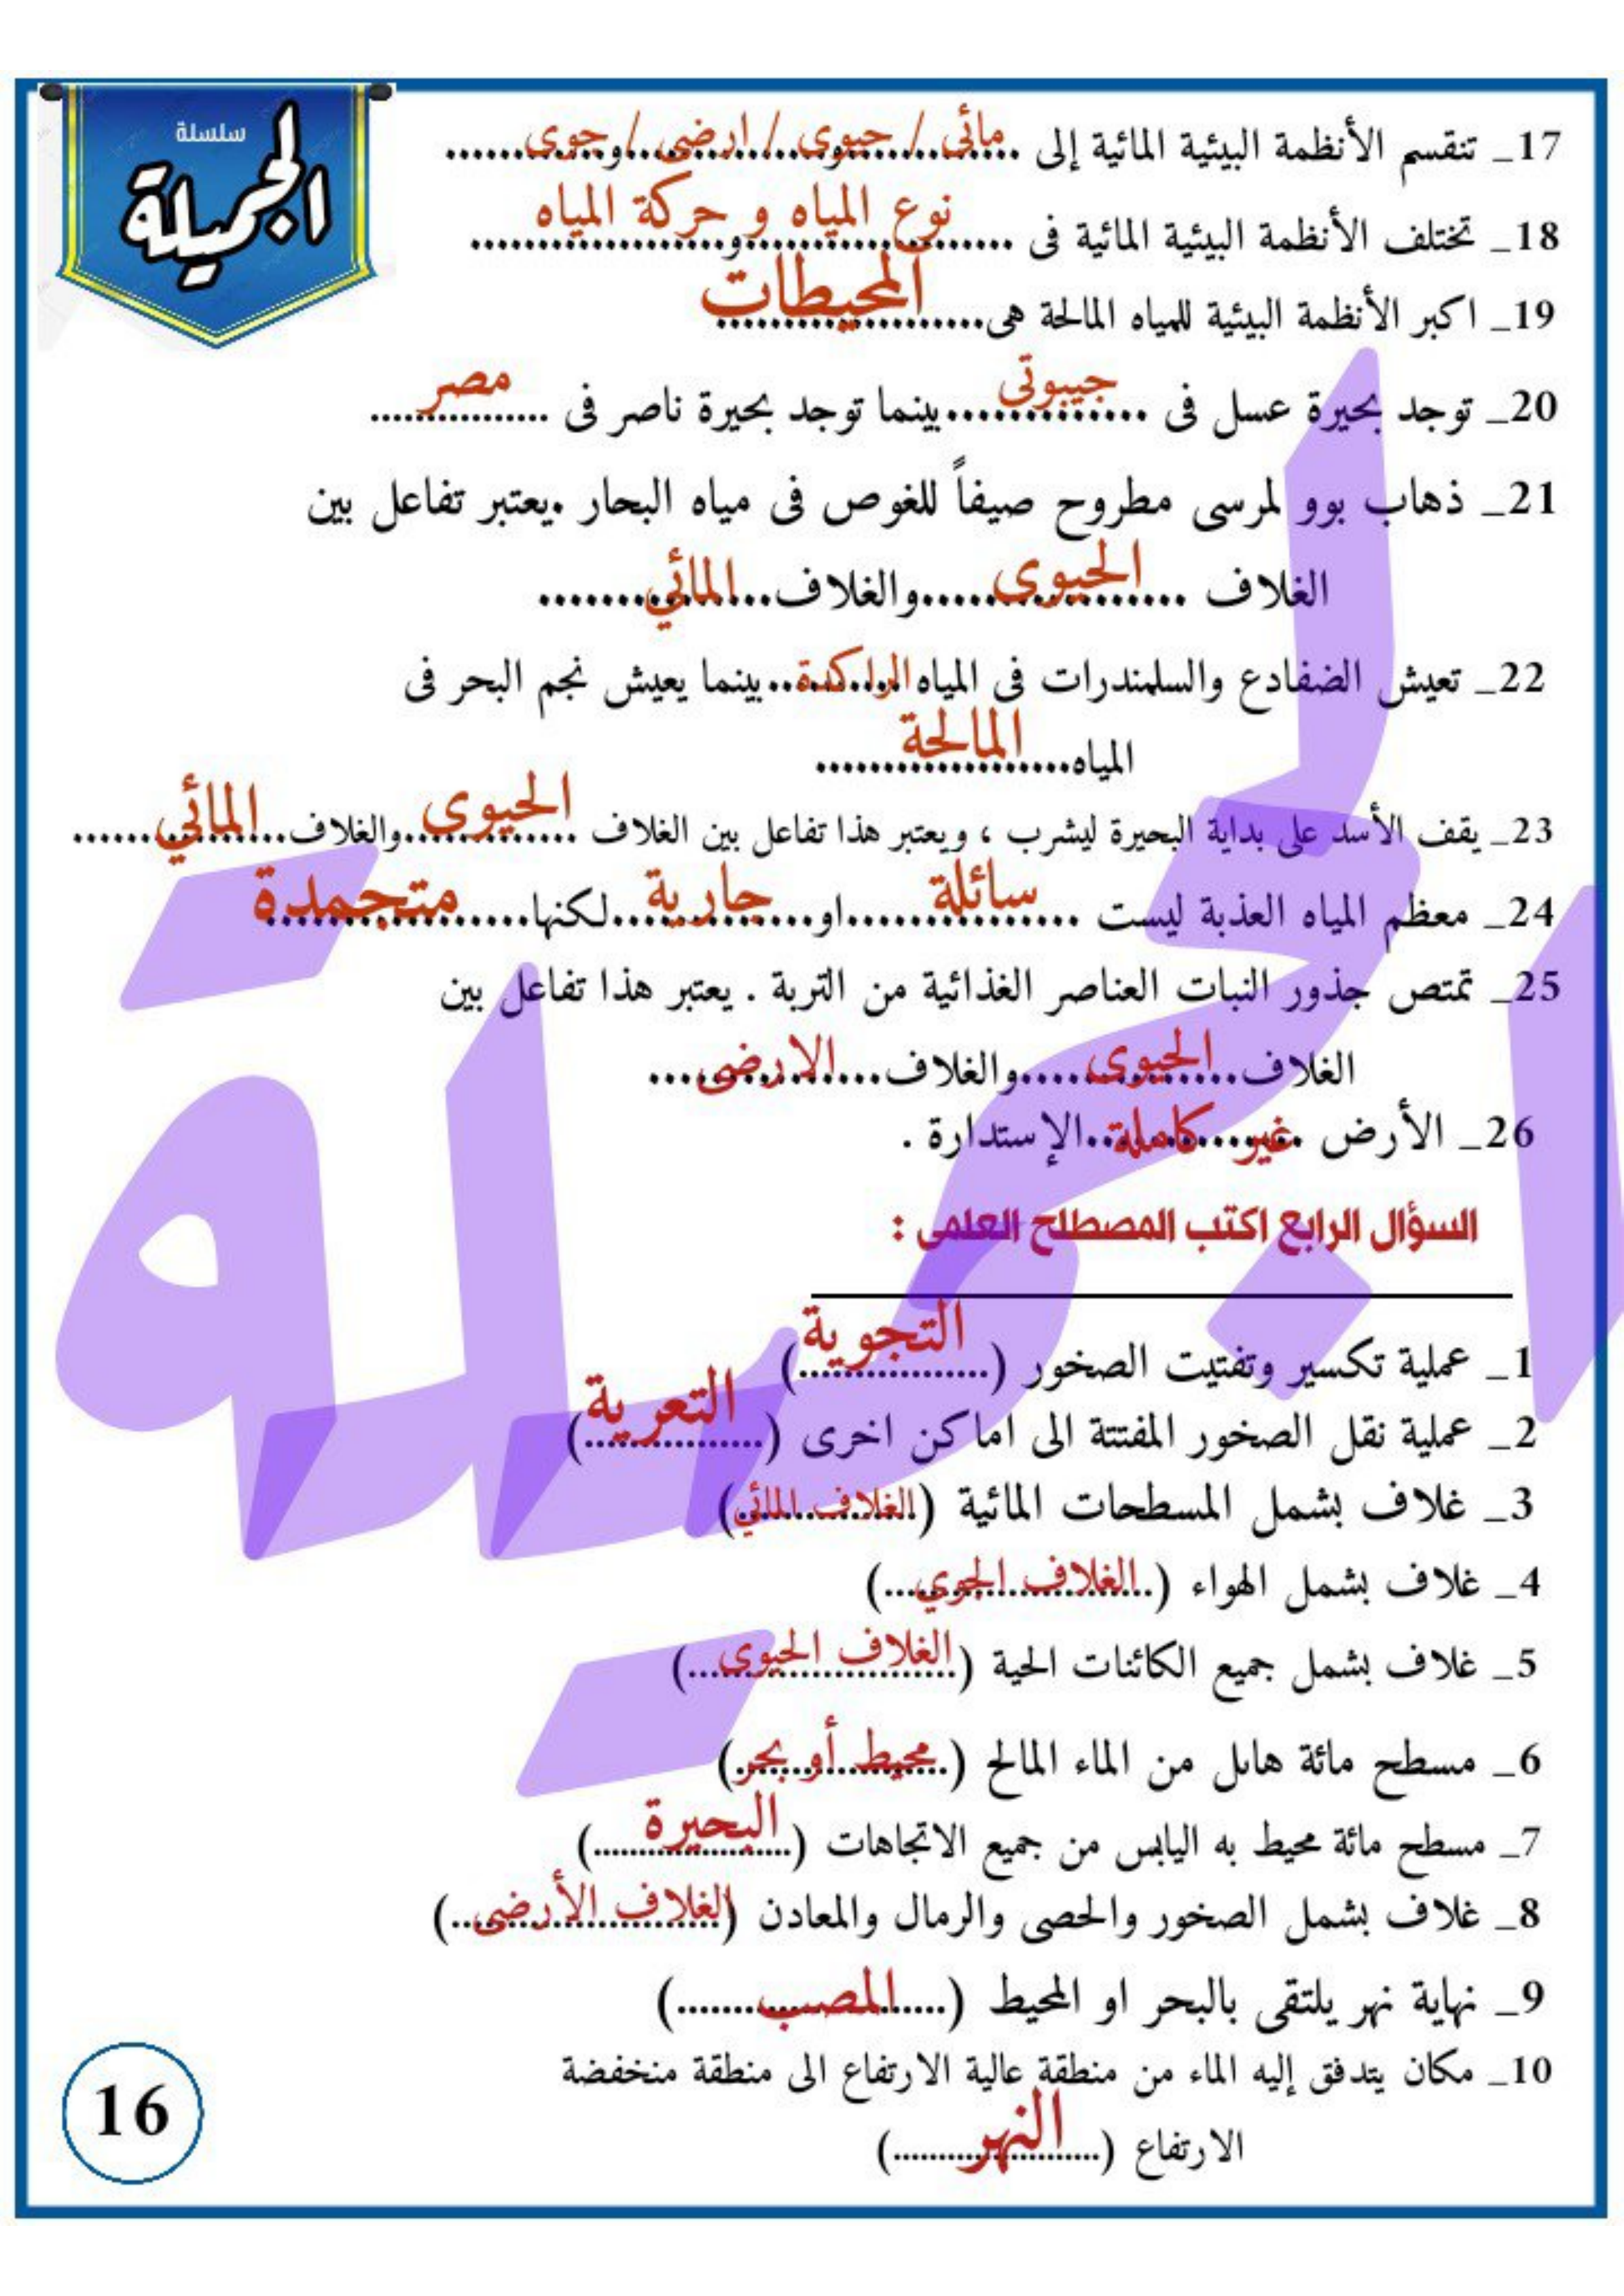 سلسلة
الجميلة
17_ تنقسم الأنظمة البيئية المائية إلى مائى / حيوى / ارضى / جوى
18_ تختلف الأنظمة البيئية المائية فى نوع المياه و حركة المياه
19_ اكبر الأنظمة البيئية للمياه المالحة هى المحيطات
20_ توجد بحيرة عسل فى جيبوتى بينما توجد بحيرة ناصر فى مصر
21_ ذهاب بوو لمرسى مطروح صيفاً للغوص فى مياه البحار .يعتبر تفاعل بين
الغلاف الحيوى والغلاف المائي
22_ تعيش الضفادع والسلمندرات فى المياه الراكدة بينما يعيش نجم البحر فى
المياه المالحة
23_ يقف الأسد على بداية البحيرة ليشرب ، ويعتبر هذا تفاعل بين الغلاف الحيوى والغلاف المائي
24_ معظم المياه العذبة ليست سائلة او جارية لكنها متجمدة
25_ تمتص جذور النبات العناصر الغذائية من التربة . يعتبر هذا تفاعل بين
الغلاف الحيوى والغلاف الارضى
26_ الأرض غير كاملة الإستدارة .
السؤال الرابع اكتب المصطلح العلمى :
1_ عملية تكسير وتفتيت الصخور (التجوية)
2_ عملية نقل الصخور المفتتة الى اماكن اخرى (التعرية)
3_ غلاف يشمل المسطحات المائية (الغلاف المائي)
4_ غلاف يشمل الهواء (الغلاف الجوي)
5_ غلاف يشمل جميع الكائنات الحية (الغلاف الحيوى)
6_ مسطح مائة هايل من الماء المالح (محيط أو بحر)
7_ مسطح مائة محيط به اليابس من جميع الاتجاهات (البحيرة)
8_ غلاف يشمل الصخور والحصى والرمال والمعادن (الغلاف الأرضى)
9_ نهاية نهر يلتقى بالبحر او المحيط (المصب)
10_ مكان يتدفق إليه الماء من منطقة عالية الارتفاع الى منطقة منخفضة
الارتفاع (النهر)
16
الجميلة